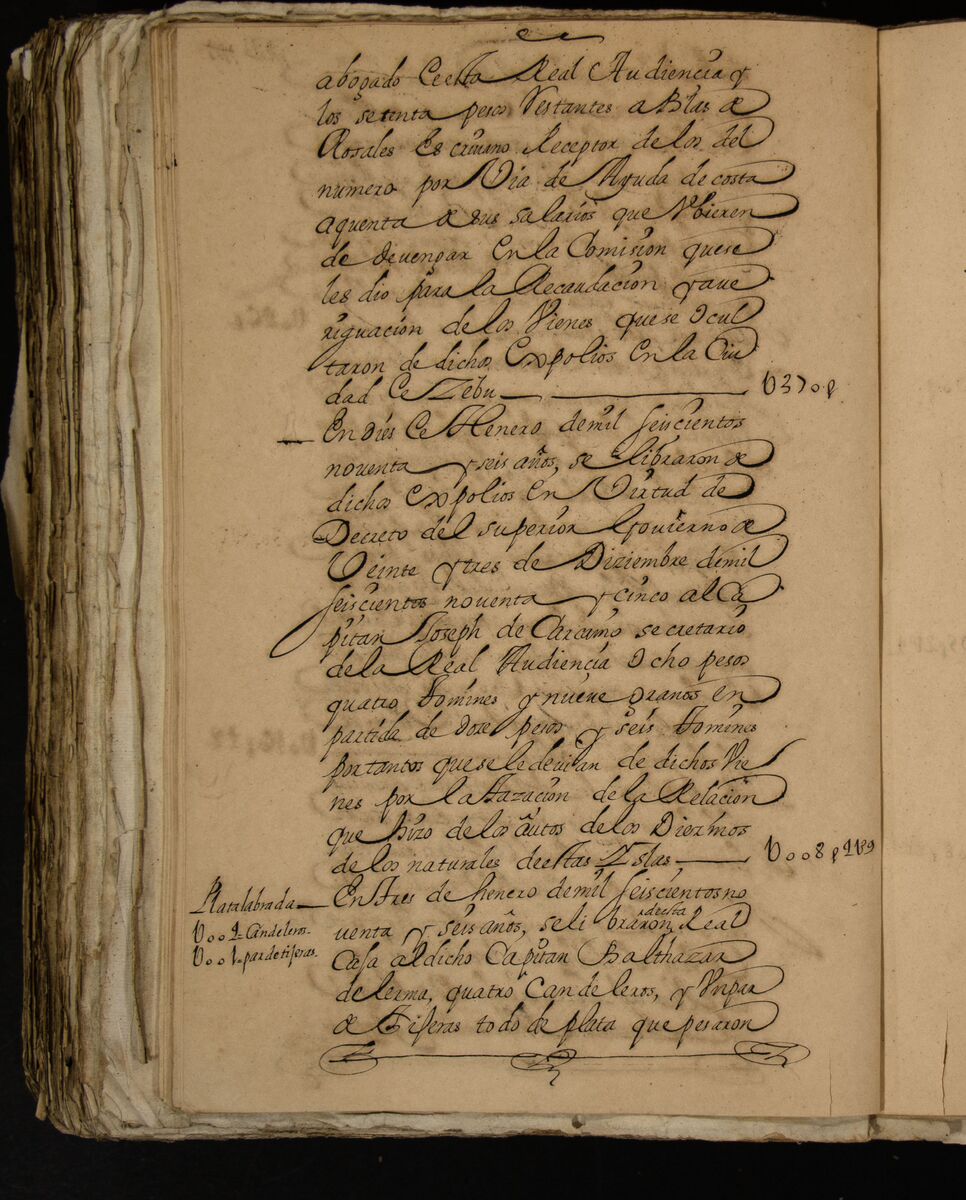 abogado de esta Real Audiencia y
los setenta pesos restantes a Blas de
Rosales Escriuano Receptor de los del
numero por Via de Ayuda de costa
aquenta de sus salarios que Vbieren
de deuengar en la Comision que se
les dio para la Recaudacion y aue
riguacion de los Vienes que se ocul
taron de dichos expolios en la Ciu
dad de Zebu U370 p
En dies de Henero de mil seiscientos
noventa y seis años, se libraron de
dichos expolios en Virtud de
Decreto del superior Gouierno de
Veinte y tres de Diziembre de mil
seiscientos noventa y cinco al Ca
pitan Joseph de Carcamo secretario
de la Real Audiencia ocho pesos
quatro tomines y nueue granos en
partida de doze pesos y seis tomines
por tantos que se le deuian de dichos Vie
nes por la tazacion de la Relacion
que hizo de los autos de los Diezmos
de los naturales de estas Yslas U008 p 4 t 9
Plata labrada
En tres de henero de mil seiscientos no
U004 Candeleros
venta y seis años, se libraron desta Real
U001 par de tiseras
Casa al dicho Capitan Balthazar
de lerma, quatro Candeleros, y Vn par
de tiseras todo de plata que pesaron